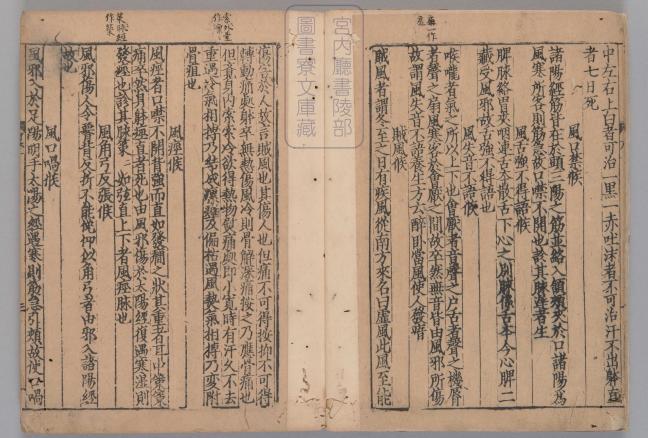 中左右上白者可治一黑一赤吐沫者不可治汗不出體直
者七日死
風口噤候
諸陽經筋皆在於頭三陽之筋並絡入頷頰夾於口諸陽爲
風寒所客則筋急故口噤不開也診其脉遲者生
風舌強不得語候
脾脉絡胃夾咽連舌本散舌下心之別脉係舌本今心脾二
藏受風邪故舌強不得語也
風失音不語候
喉嚨者氣之所以上下也會厭者音聲之户舌者聲之機脣
者聲之扇風寒客於會厭之間故卒然無音皆由風邪所傷
故謂風失音不語養生方云醉卧當風使人發瘖
賊風候
賊風者謂冬至之日有疾風從南方來名曰虛風此風至能
傷害於人故言賊風也其傷人也但痛不可得按抑不可得
轉動痛處體卒無熱傷風冷則骨解深痛按之乃應骨痛也
但覺身内索索冷欲得熱物熨痛處即小寬時有汗久不去
重遇冷氣相搏乃結成瘰癧及偏枯遇風熱氣相搏乃變附
骨疽也
風痙候
風痙者口噤不開背強而直如發癎之狀其重者耳中策策
痛卒然身體痙直者死也由風邪傷於太陽經復遇寒濕則
發痙也診其脉策策如弦直上下者風痙脉也
風角弓反張候
風邪傷人令腰背反折不能俛仰似角弓者由邪入諸陽經
故也
風口喎候
風邪入於足陽明手太陽之經遇寒則筋急引頰故使口喎
宮内廳書陵部
圖書寮文庫藏